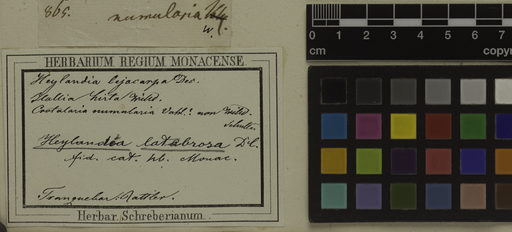 869.
numularia
W.
HERBARIUM REGIUM MONACENSE
Heylandia leiocarpa Dec.
Hallia hirta Willd.
Crotalaria numularia Vahl.! non Willd.
Heylandia latebrosa D.C.
fid. cat. hb. Monac.
Tranquebar: Rottler.
Herbar. Schreberianum.
0
1
cm
copy